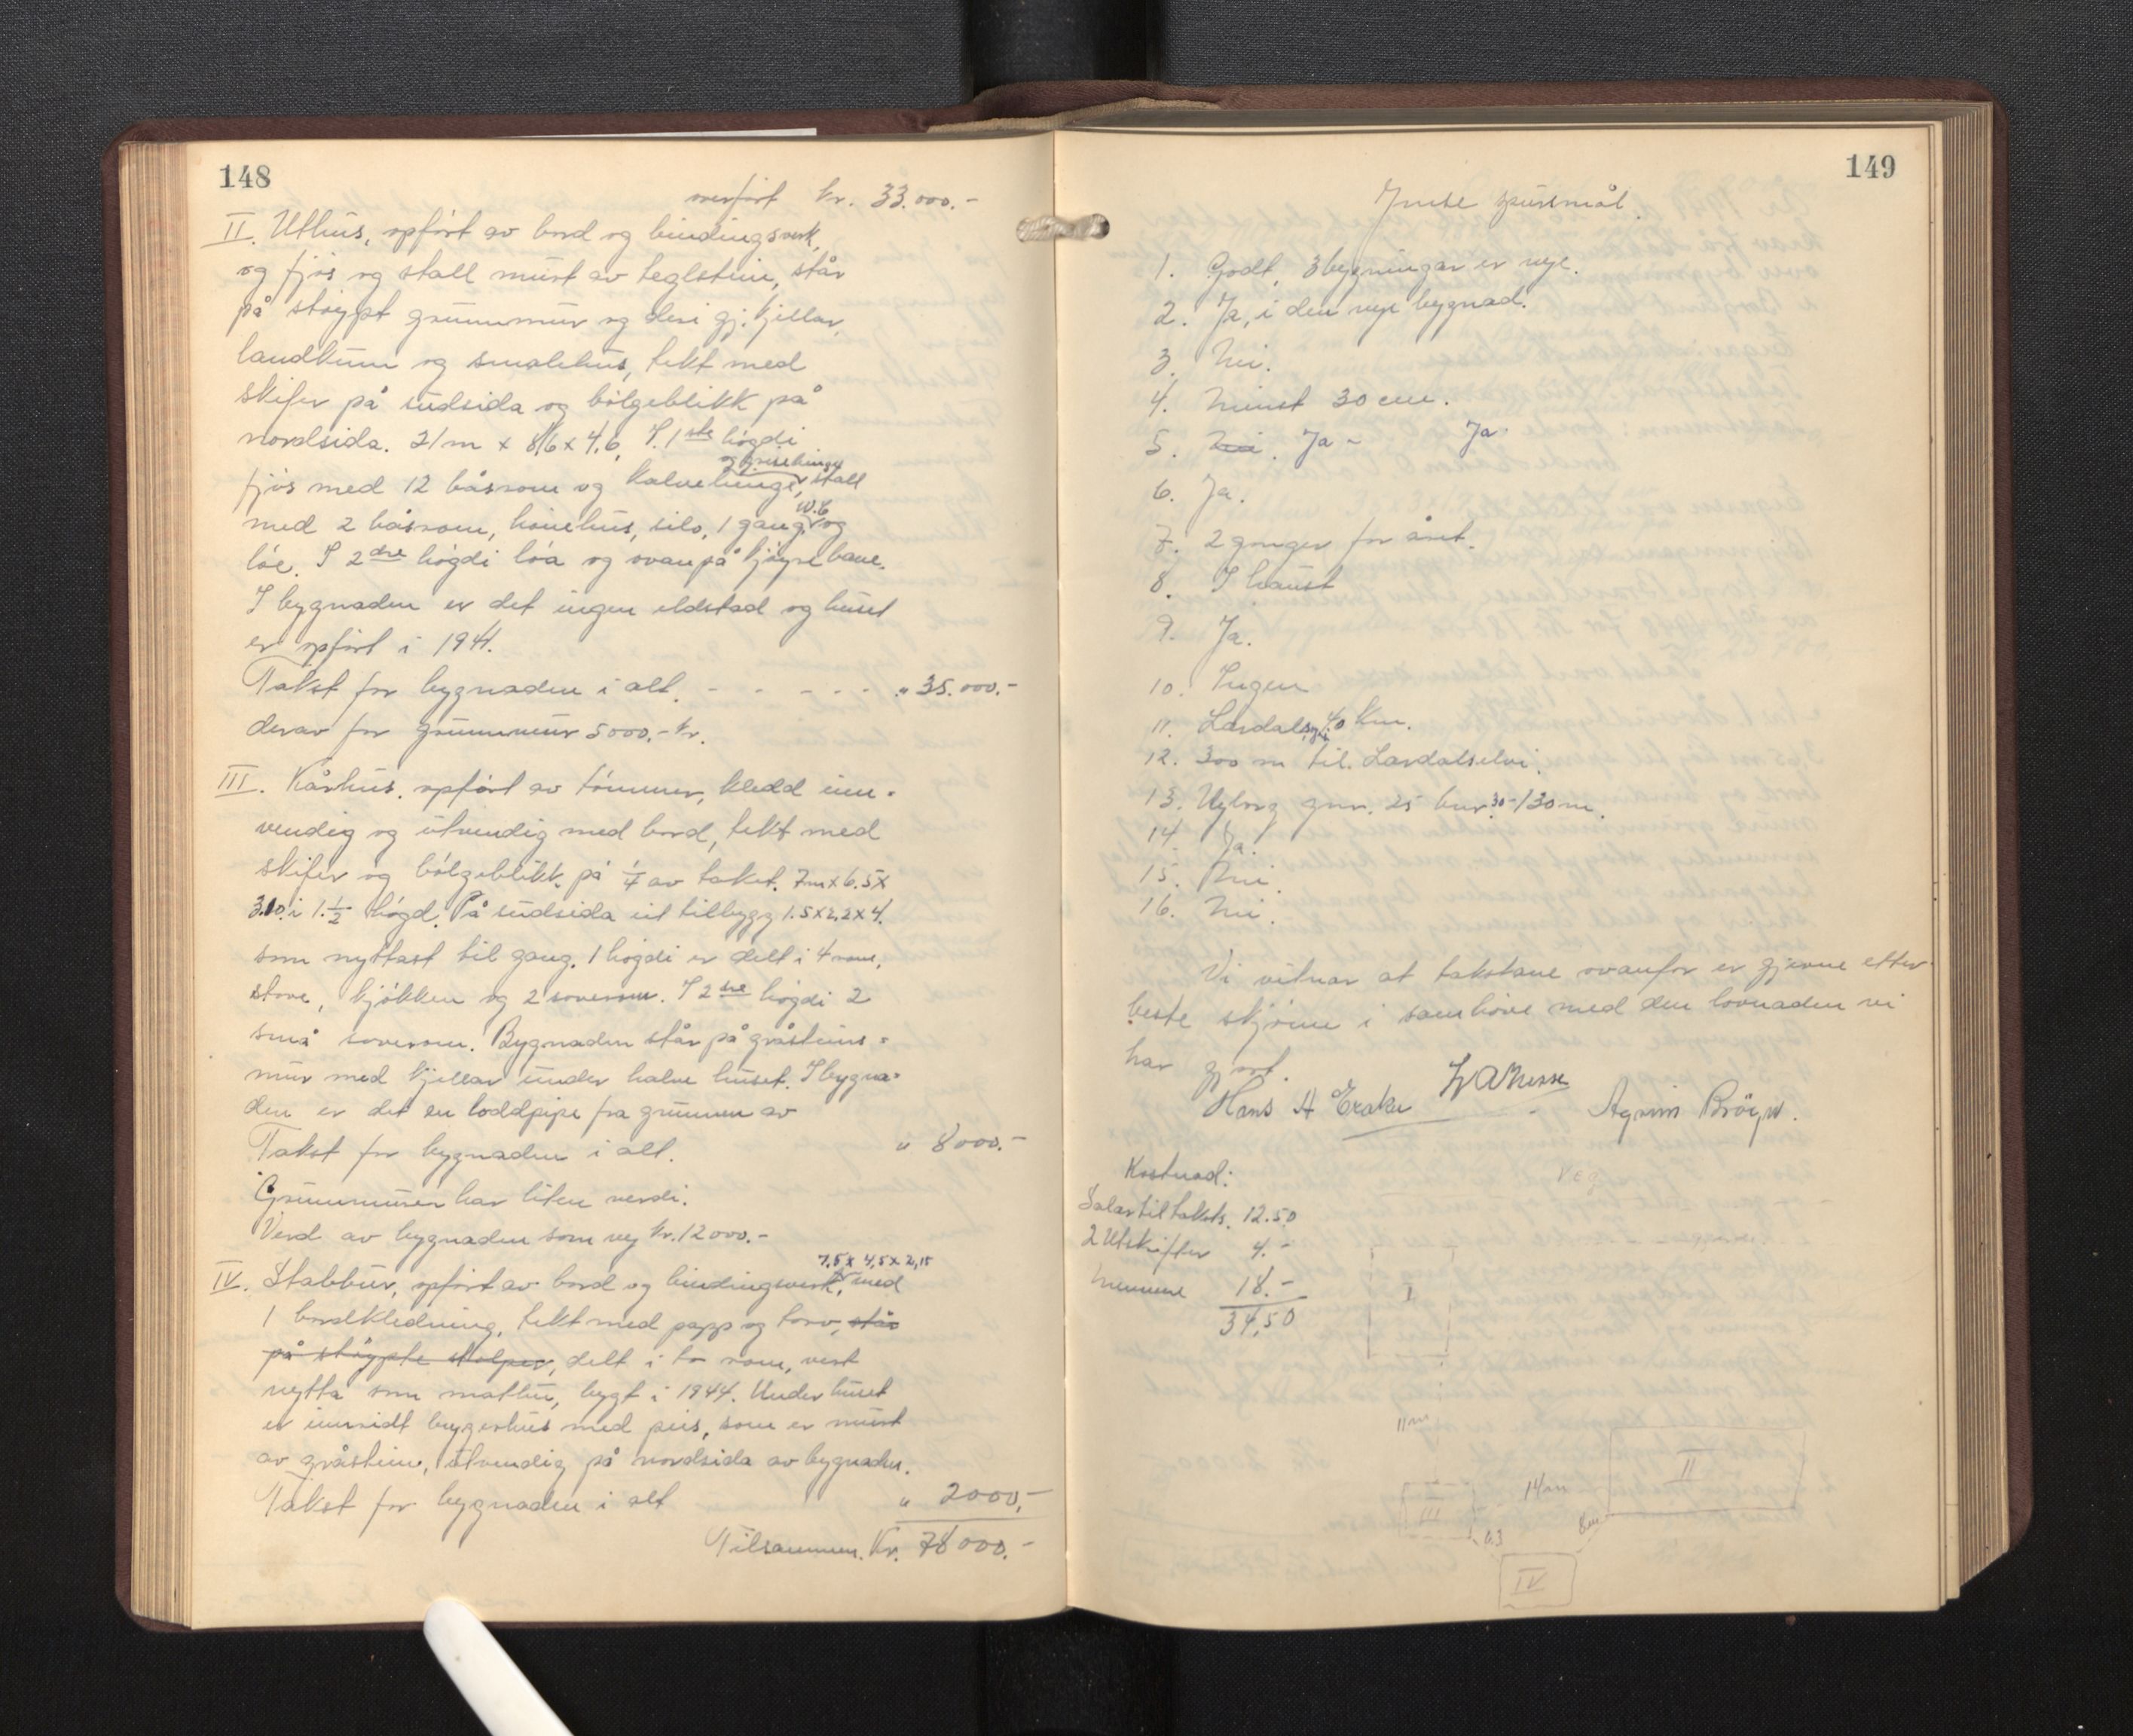 148
overført kr. 33.000.-
II. Uthus, opført av bord og bindingsverk,
og fjøs og stall murt av teglstein, står
på støypt grunnmur og deri gj. kjellar,
landkum og smalehus, tekt med
skifer på sudsida og bølgeblikk på
nordsida. 21m x 8,6 x 4,6. I 1ste høgdi
og grisebinge
fjøs med 12 båsrom og kalvebinge, stall
w.c
med 2 båsrom, hønehus, silo, 1 gang, og
løe. I 2dre høgdi løa og ovanpå kjøyrebane.
I bygnaden er det ingen eldstad og huset
er opført i 1941.
Takst for bygnaden i alt. - - - - - " 35.000.-
derav for grunnmur 5000.- kr.
III. Kårhus, opført av tømmer, kledd inn-
vendig og utvendig med bord, tekt med
skifer og bølgeblikk på 1/4 av taket. 7m x 6.5 x
3.10 i 1.1/2 høgd. På sudsida eit tilbygg 1.5 x 2.2 x 4.
som nyttast til gang. 1 høgdi er delt i 4 rom,
stove, kjøkken og 2 soverom. I 2dre høgdi 2
små soverom. Bygnaden står på gråsteins-
mur med kjellar under halve huset. I bygna-
den er det en loddpipe fra grunnen av
Takst for bygnaden i alt. " 8000.-
Grunnmuren har liten verdi.
Verd av bygnaden som ny kr. 12000.-
7,5 x 4,5 x 2,15
IV. Stabbur, opført av bord og bindingsverk, med
1 bordkledning, tekt med papp og torv, står
på støypte stolper, delt i to rom, vert
nytta som matbu, bygt i 1944. Under huset
er innreidt bryggerhus med peis, som er murt
av gråstein, utvendig på nordsida av bygnaden.
Takst for bygnaden i alt " 2000,-
Tilsammen. Kr. 78000.-
149
Ymse spursmål.
1. Godt, 3 bygningar er nye.
2. Ja, i den nye bygnad.
3. Nei.
4. Minst 30 cm.
5. Nei. Ja - Ja
6. Ja.
7. 2 gonger for året.
8. I haust
9. Ja.
10. Ingen
11. Lærdalsøyri 40 km.
12. 300 m til Lærdalselvi.
13. Nyborg gnr. 25 bnr. 30 - 130 m.
14. Ja.
15. Nei.
16. Nei.
Vi vitnar at takstane ovanfor er gjevne etter
beste skjøne i samhøve med den lovnaden vi
har gjort.
Hans A
Kostnad:
Salær til takstn. 12.50
2 Utskifter 4.-
18.-
34,50
Veg
I
11m
II
14m
III
8m
6.3
IV